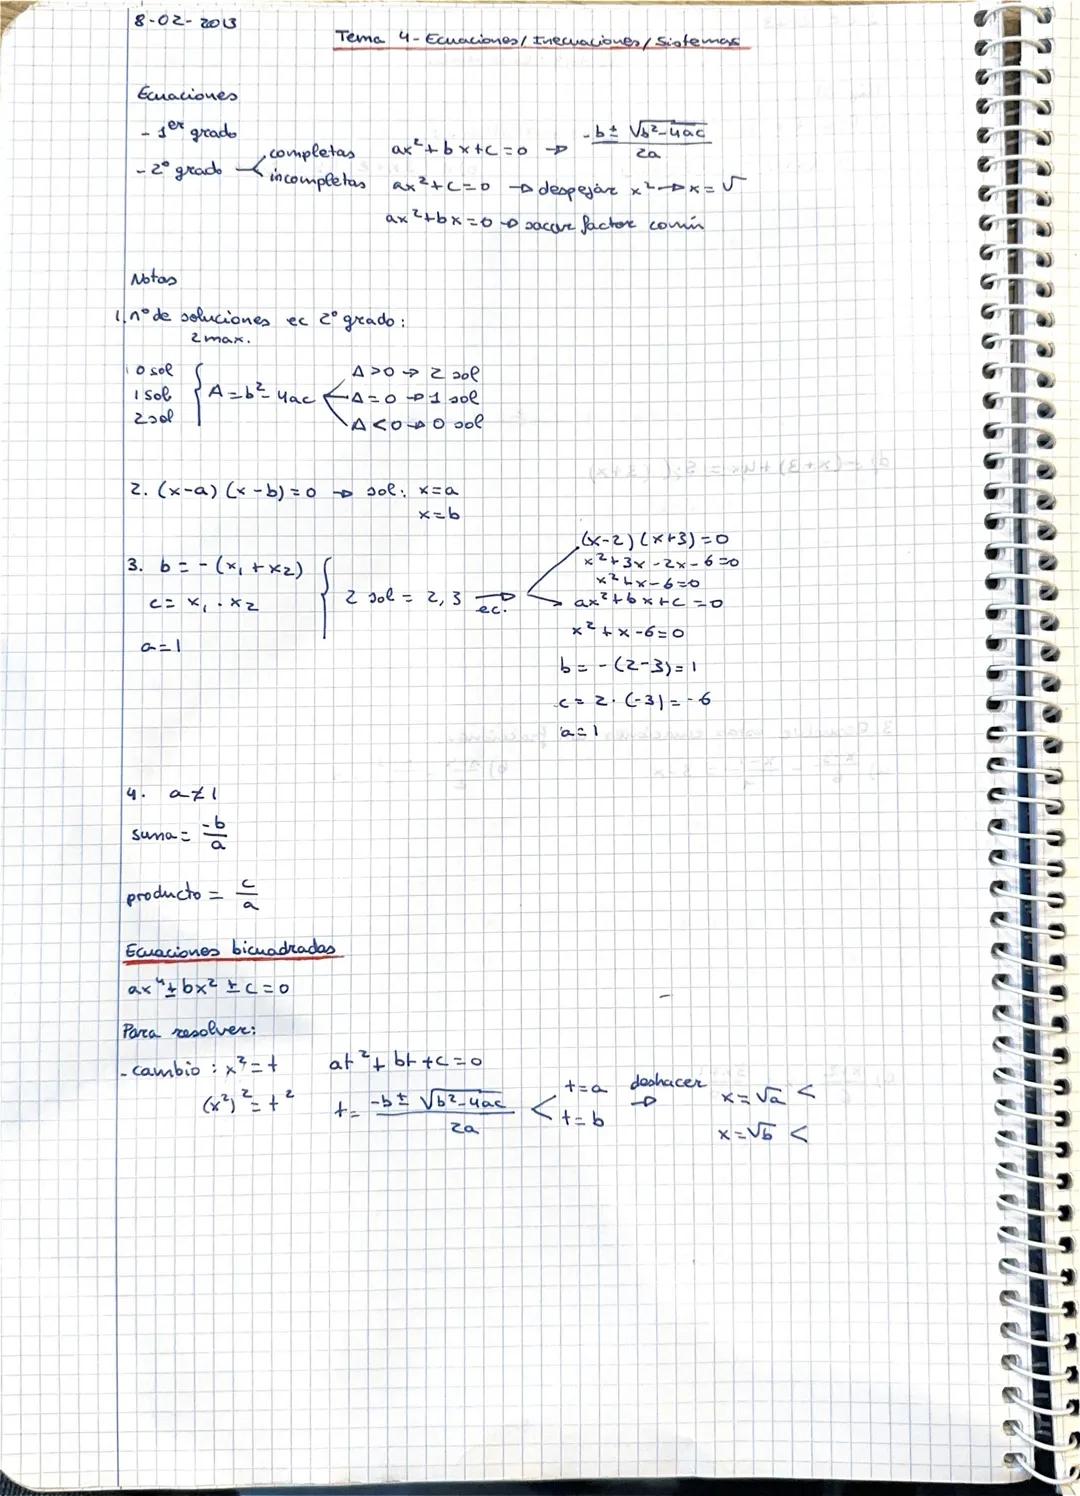 8-02-2013
Tema 4-Ecuaciones/Inecuaciones/Sistemas
Ecuaciones
- 1er grado
- 2º grado
completas ax²+bx+c=0 → -b± √b²-4ac / 2a
incompletas ax²+c=0 → despejar x² → x=√
ax²+bx=0 → sacar factor común
Notas
1. nº de soluciones ec 2º grado:
2 max.
0 sol
1 sol
2 sol
Δ=b²-4ac
Δ>0 → 2 sol
Δ=0 → 1 sol
Δ<0 → 0 sol
2. (x-a)(x-b)=0 → sol: x=a
x=b
3. b=-(x₁+x₂)
c=x₁·x₂
a=1
2 sol = 2,3 → ec.
(x-2)(x+3)=0
x²+3x-2x-6=0
x²+x-6=0
ax²+bx+c=0
x²+x-6=0
b=-(2-3)=1
c=2·(-3)=-6
a=1
4. a≠1
suma= -b/a
producto= c/a
Ecuaciones bicuadradas
ax⁴±bx²±c=0
Para resolver:
- cambio: x²=t at²+bt+c=0
(x²)²=t² t= -b± √b²-4ac / 2a < t=a deshacer → x=√a <
t=b x=√b <